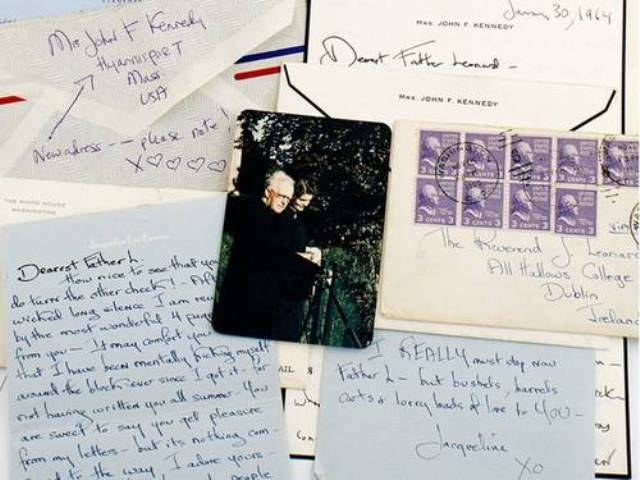 Mrs John F Kennedy
Hyannisport
Mass
USA
New adress -- please note!
X
MRS. JOHN F. KENNEDY
January 30, 1964
Dearest Father Leonard -
MRS. JOHN F. KENNEDY
THE WHITE HOUSE
WASHINGTON
3 CENTS 3
3 CENTS 3
3 CENTS 3
3 CENTS 3
3 CENTS 3
3 CENTS 3
3 CENTS 3
3 CENTS 3
The Reverend J. Leonard
All Hallows College
Dublin
Ireland
Dearest Father L.
How nice to see that you
do turn the other cheek! - Aft
wicked long silence I am rew
by the most wonderful 4 page
from you - It may comfort you
that I have been mentally kicking myself
around the block ever since I got it - for
not having written you all summer. You
are sweet to say you get pleasure
from my letters - but its nothing com-
to the way I adore yours -
people
AIL
I REALLY must stop now
Father L - but bushels, barrels
carts & lorry loads of love to YOU -
Jacqueline
XO